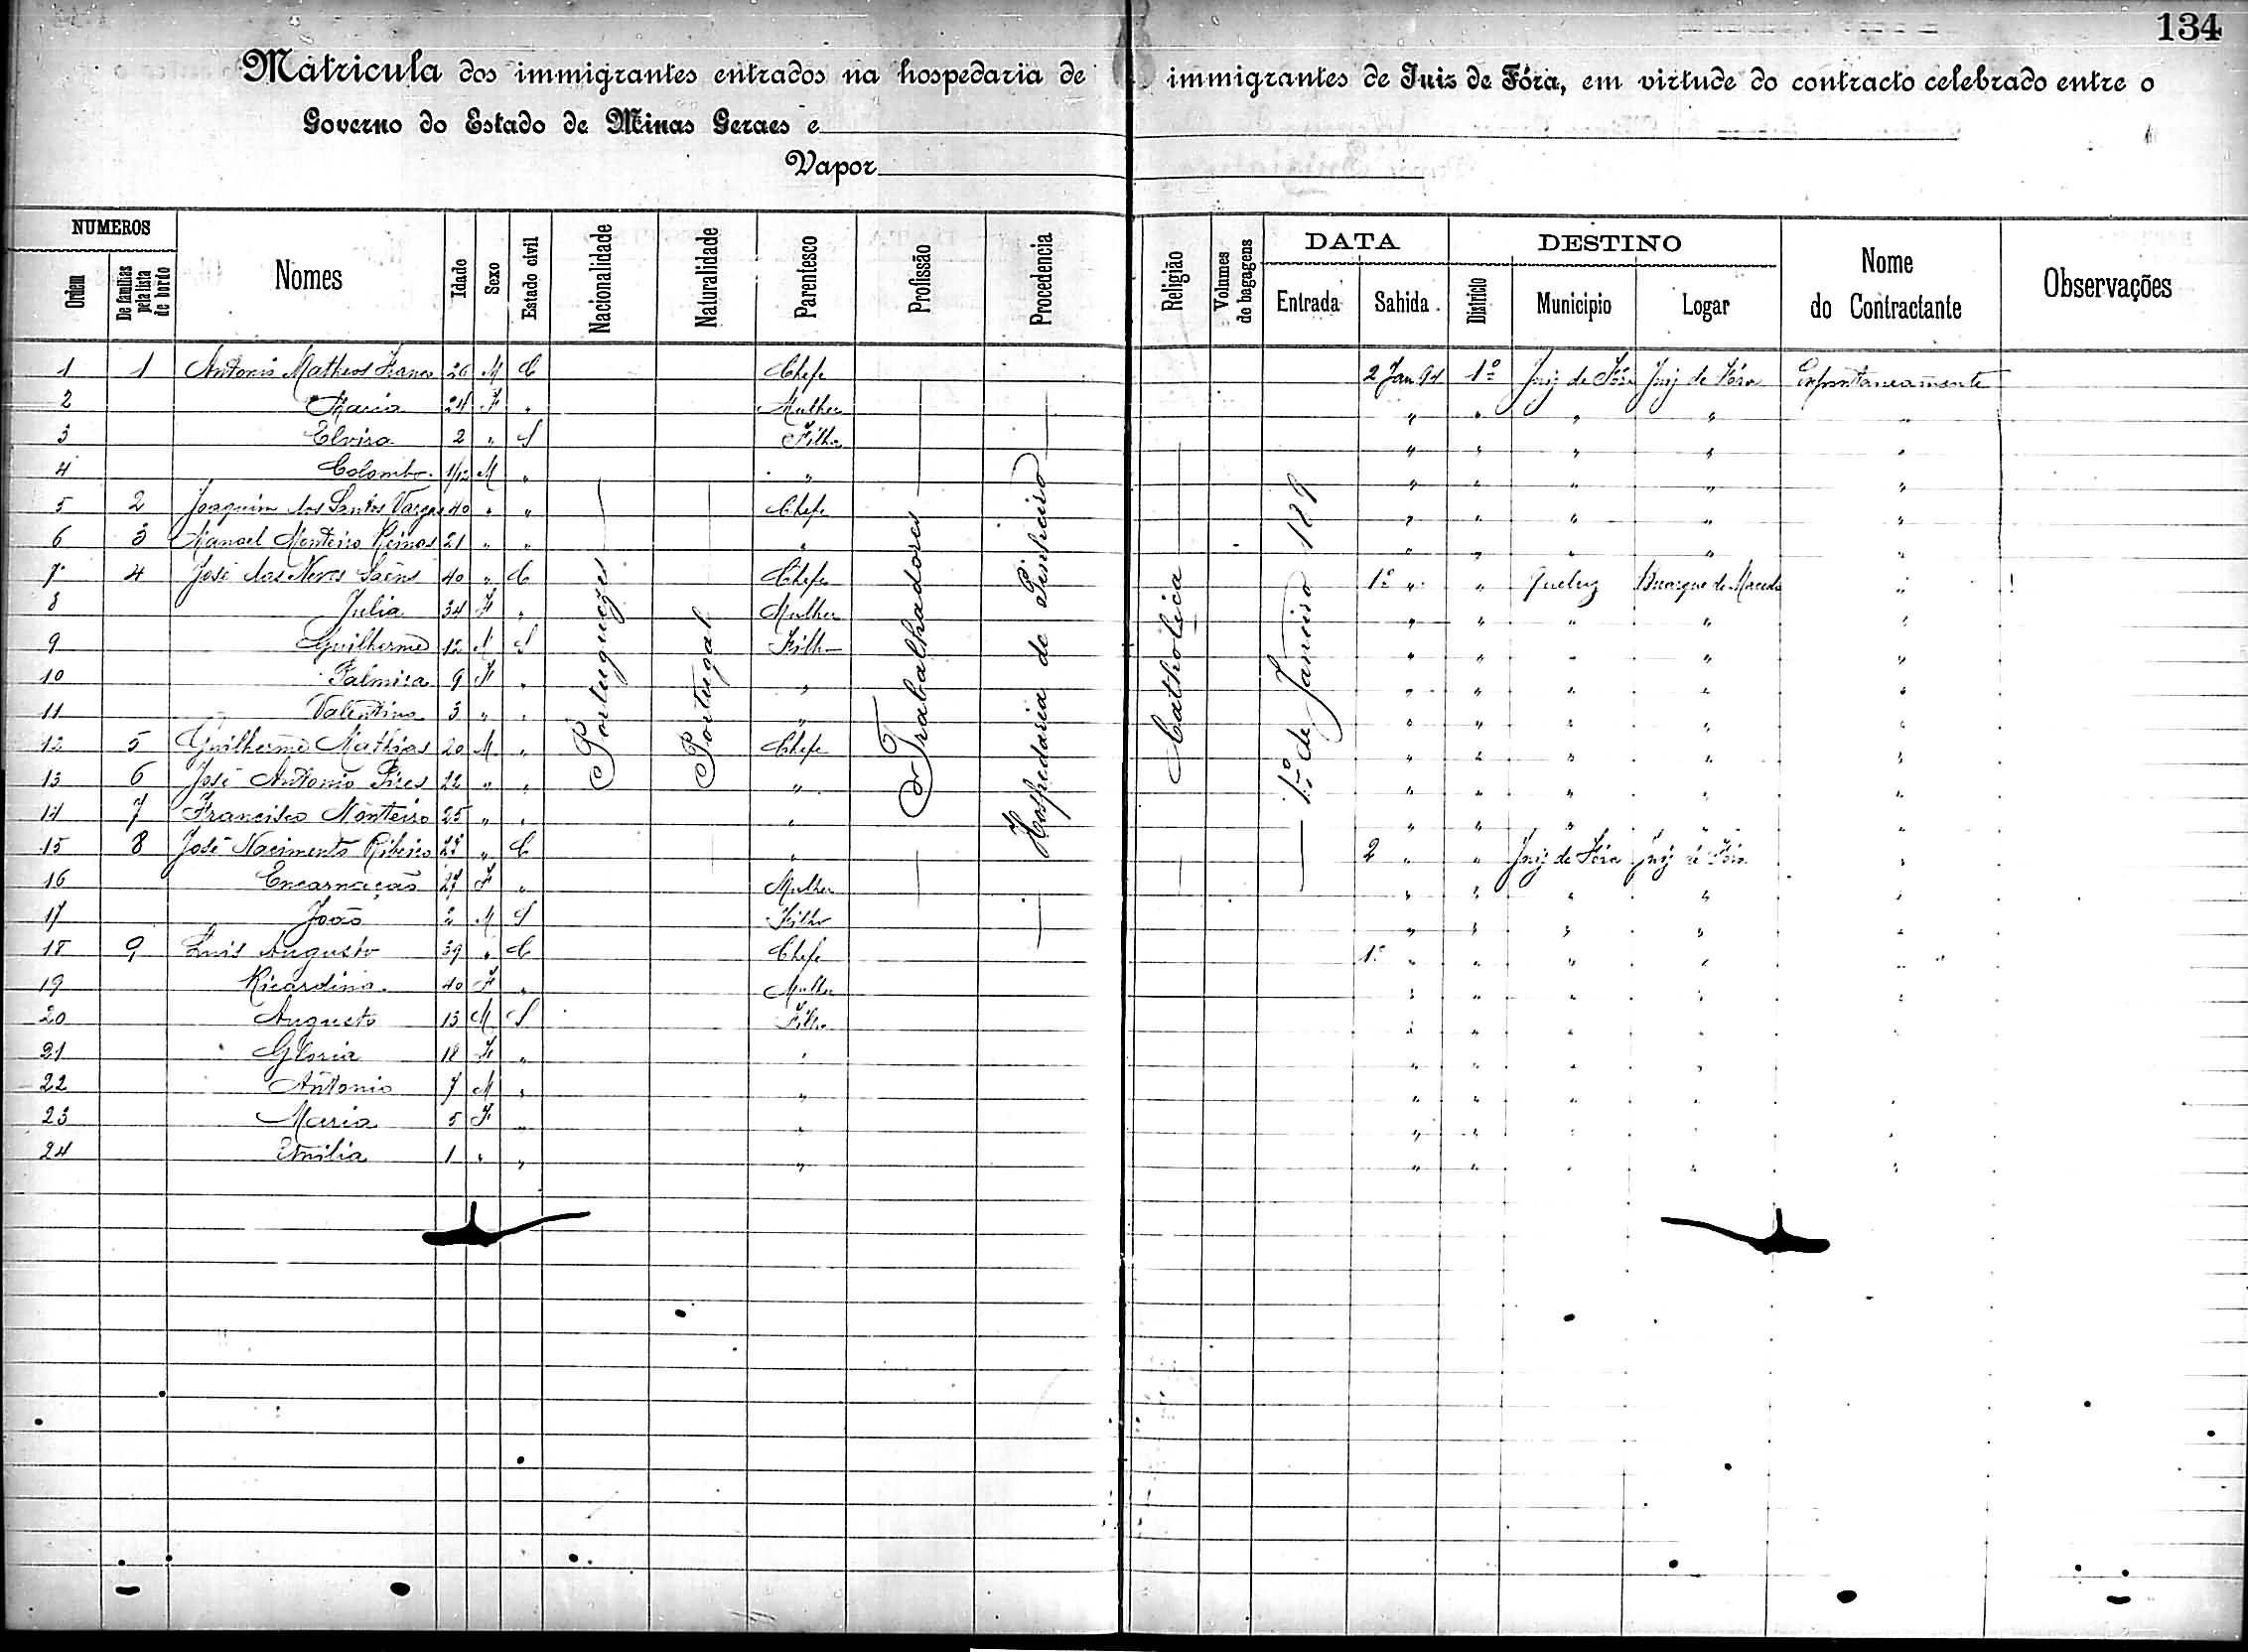 134
Matricula dos immigrantes entrados na hospedaria de immigrantes de Juiz de Fóra, em virtude do contracto celebrado entre o
Governo do Estado de Minas Geraes e
Vapor
NUMEROS DATA DESTINO
Ordem De familias pela lista de bordo Nomes Idade Sexo Estado civil Nacionalidade Naturalidade Parentesco Profissão Procedencia Religião Volumes de bagagens Entrada Sahida Districto Municipio Logar Nome do Contractante Observações
1 1 Antonio Matheos 26 M C Chefe 2 Jan 94 1º Juiz de Fóra Juiz de Fóra Expontaneamente
2 Maria 24 F " Mulher " " " " "
3 Elvira 2 " S Filha " " " " "
4 Colombo 1/12 M " " " " " " "
5 2 Joaquim dos Santos Vargas 40 " " Chefe " " " " "
6 3 Manoel Monteiro 21 " " " " " " " "
7 4 José das Neves 40 " C Chefe 1º " " Queluz Buarque de Macedo "
8 Julia 34 F " Mulher " " " " "
9 Guilherme 12 M S Filho " " " " "
10 Palmira 9 F " " " " " " "
11 Valentina 3 " " " " " " " "
12 5 Guilherme Mathias 20 M " Chefe " " " " "
13 6 José Antonio Pires 22 " " " " " " " "
14 7 Francisco Monteiro 25 " " " " " " " "
15 8 José Nacimento Ribeiro " C " 2 " " Juiz de Fóra Juiz de Fóra "
16 Encarnação 27 F " Mulher " " " " "
17 João 2 M S Filho " " " " "
18 9 Luis Augusto 39 " C Chefe 1º " " " " "
19 Ricardina 40 F " Mulher " " " " "
20 Augusto 13 M S Filho " " " "
21 Gloria 18 F " " " " " "
22 Antonio 7 M " " " " " "
23 Maria 5 F " " " " " " "
24 Emilia 1 " " " " " " " "
Portuguezes
Portugal
Trabalhadores
Hospedaria de Pinheiro
Catholica
1º de Janeiro 189